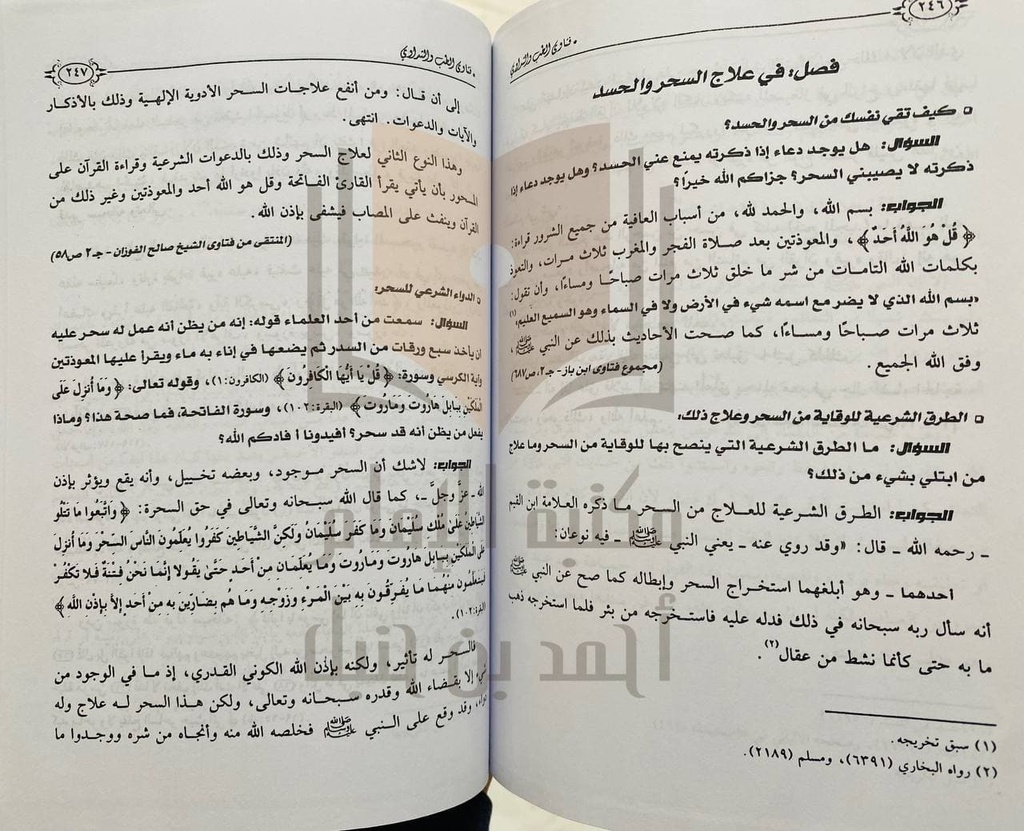 ٢٤٦
• فتاوى الطب والتداوي
فصل: في علاج السحر والحسد
◘ كيف تقي نفسك من السحر والحسد؟
السؤال: هل يوجد دعاء إذا ذكرته يمنع عني الحسد؟ وهل يوجد دعاء إذا
ذكرته لا يصيبني السحر؟ جزاكم الله خيرًا؟
الجواب: بسم الله، والحمد لله، من أسباب العافية من جميع الشرور قراءة:
﴿ قُلْ هُوَ اللَّهُ أَحَدٌ ﴾، والمعوذتين بعد صلاة الفجر والمغرب ثلاث مرات، والتعوذ
بكلمات الله التامات من شر ما خلق ثلاث مرات صباحًا ومساءًا، وأن تقول:
«بسم الله الذي لا يضر مع اسمه شيء في الأرض ولا في السماء وهو السميع العليم»(١)
ثلاث مرات صباحًا ومساءًا، كما صحت الأحاديث بذلك عن النبي ﷺ،
وفق الله الجميع.
(مجموع فتاوى ابن باز - جـ٢، ص٦٨٧)
◘ الطرق الشرعية للوقاية من السحر وعلاج ذلك:
السؤال: ما الطرق الشرعية التي ينصح بها للوقاية من السحر وما علاج
من ابتلي بشيء من ذلك؟
الجواب: الطرق الشرعية للعلاج من السحر ما ذكره العلامة ابن القيم
ـ رحمه الله ـ قال: «وقد روي عنه ـ يعني النبي ﷺ ـ فيه نوعان:
أحدهما ـ وهو أبلغهما استخراج السحر وإبطاله كما صح عن النبي ﷺ
أنه سأل ربه سبحانه في ذلك فدله عليه فاستخرجه من بئر فلما استخرجه ذهب
ما به حتى كأنما نشط من عقال(٢).
(١) سبق تخريجه.
(٢) رواه البخاري (٦٣٩١)، ومسلم (٢١٨٩).
• فتاوى الطب والتداوي
٢٤٧
إلى أن قال: ومن أنفع علاجات السحر الأدوية الإلهية وذلك بالأذكار
والآيات والدعوات. انتهى.
وهذا النوع الثاني لعلاج السحر وذلك بالدعوات الشرعية وقراءة القرآن على
المسحور بأن يأتي يقرأ القارئ الفاتحة وقل هو الله أحد والمعوذتين وغير ذلك من
القرآن وينفث على المصاب فيشفى بإذن الله.
(المنتقى من فتاوى الشيخ صالح الفوزان - جـ٢ ص٥٨)
◘ الدواء الشرعي للسحر:
السؤال: سمعت من أحد العلماء قوله: إنه من يظن أنه عمل له سحر عليه
ان يأخذ سبع ورقات من السدر ثم يضعها في إناء به ماء ويقرأ عليها المعوذتين
وآية الكرسي وسورة: ﴿ قُلْ يَا أَيُّهَا الْكَافِرُونَ ﴾ (الكافرون:١)، وقوله تعالى: ﴿ وَمَا أُنزِلَ عَلَى
الْمَلَكَيْنِ بِبَابِلَ هَارُوتَ وَمَارُوتَ ﴾ (البقرة:١٠٢)، وسورة الفاتحة، فما صحة هذا؟ وماذا
يفعل من يظن أنه قد سحر؟ أفيدونا أ فادكم الله؟
الجواب: لاشك أن السحر موجود، وبعضه تخييل، وأنه يقع ويؤثر بإذن
الله ـ عزَّ وجلَّ ـ، كما قال الله سبحانه وتعالى في حق السحرة: ﴿ وَاتَّبَعُوا مَا تَتْلُو
الشَّيَاطِينُ عَلَىٰ مُلْكِ سُلَيْمَانَ وَمَا كَفَرَ سُلَيْمَانُ وَلَٰكِنَّ الشَّيَاطِينَ كَفَرُوا يُعَلِّمُونَ النَّاسَ السِّحْرَ وَمَا أُنزِلَ
عَلَى الْمَلَكَيْنِ بِبَابِلَ هَارُوتَ وَمَارُوتَ وَمَا يُعَلِّمَانِ مِنْ أَحَدٍ حَتَّىٰ يَقُولَا إِنَّمَا نَحْنُ فِتْنَةٌ فَلَا تَكْفُرْ
فَيَتَعَلَّمُونَ مِنْهُمَا مَا يُفَرِّقُونَ بِهِ بَيْنَ الْمَرْءِ وَزَوْجِهِ وَمَا هُم بِضَارِّينَ بِهِ مِنْ أَحَدٍ إِلاَّ بِإِذْنِ اللَّهِ ﴾
(البقرة:١٠٢).
فالسحر له تأثير، ولكنه بإذن الله الكوني القدري، إذ ما في الوجود من
شيء إلا بقضاء الله وقدره سبحانه وتعالى، ولكن هذا السحر له علاج وله
دواء، وقد وقع على النبي ﷺ فخلصه الله منه وأنجاه من شره ووجدوا ما
مكتبة الإمام
أحمد بن حنبل